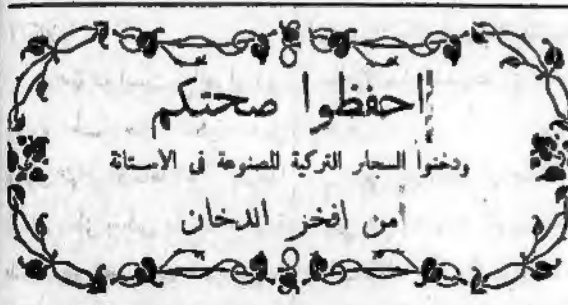 احفظوا صحتكم
ودخنوا السجاير التركية المصنوعة فى الاستانة
من افخر الدخان